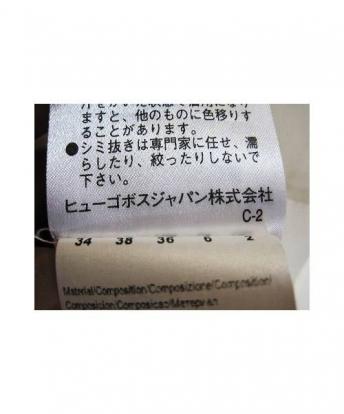 ますと、他のものに色移りす
ることがあります。
●シミ抜きは専門家に任せ、濡
らしたり、絞ったりしないで
下さい。
ヒューゴボスジャパン株式会社
C-2
34 38 36 6 2
Material/Composition/Composizione/Composition/
Composición/Composicao/Материал